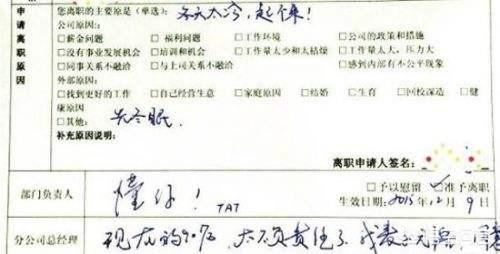 申请离职原因
您离职的主要原是(单选): 冬天太冷,起不来!
公司原因:
□薪金问题 □福利问题 □工作环境 □公司的政策和措施
□没有事业发展机会 □培训和机会 □工作量太少和太枯燥 □工作量太大,压力大
□同事关系不融洽 □与上司关系不融洽 □感到内部有不公平现象
外部原因:
□找到更好的工作 □自己经营生意 □家庭原因 □结婚 □生育 □回校深造 □健
康原因
□其他: 先冬眠.
补充原因说明:
离职申请人签名:
部门负责人 懂你! TAT □予以慰留 准予离职
生效日期: 2015年12月9日
分公司总经理 现在的90后, 太不负责任了, 我